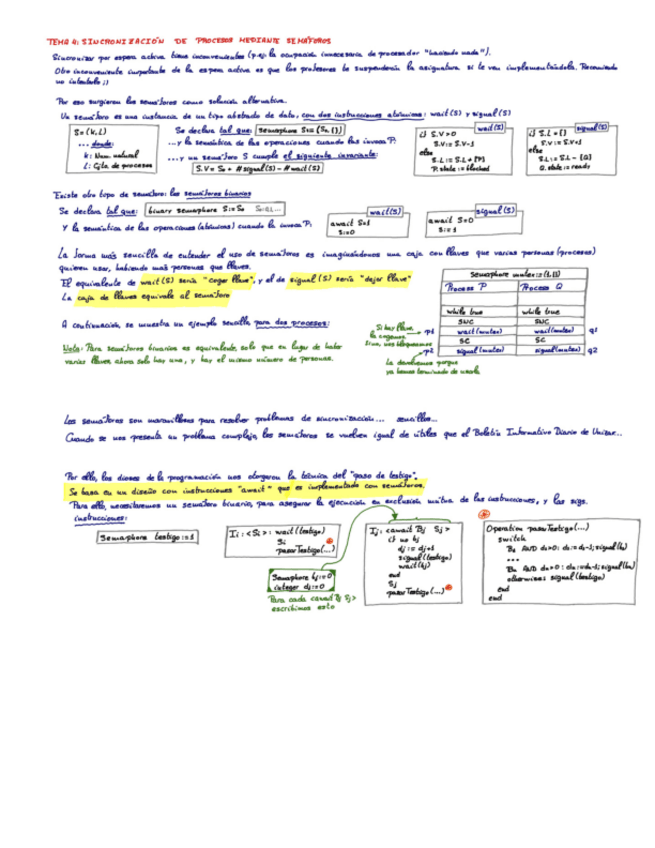 TEMA 4: SINCRONIZACIÓN DE PROCESOS MEDIANTE SEMÁFOROS
Sincronizar por espera activa tiene inconvenientes (p.ej. la ocupación innecesaria de procesador "haciendo nada").
Otro inconveniente importante de la espera activa es que los profesores te suspenderán la asignatura si te ven implementándola. Recomiendo
no intentarlo ;)
Por eso surgieron los semáforos como solución alternativa.
Un semáforo es una instancia de un tipo abstracto de dato, con dos instrucciones atómicas: wait(S) y signal(S)
S = (K, L)
... donde:
K: Num. natural
L: Cjto de procesos
Se declara tal que: semaphore S:= (So, {})
...y la semántica de las operaciones cuando las invoca P:
...y un semáforo S cumple el siguiente invariante:
S.V = So + #signal(S) - #wait(S)
wait(S)
if S.V > 0
S.V := S.V - 1
else
S.L := S.L + {P}
P.state := blocked
signal(S)
if S.L = {}
S.V := S.V+1
else
S.L := S.L - {Q}
Q.state := ready
Existe otro tipo de semáforo: los semáforos binarios
Se declara tal que: binary semaphore S:= So
Y la semántica de las operaciones (atómicas) cuando la invoca P:
wait(S)
await S=1
S:=0
signal(S)
await S=0
S:=1
La forma más sencilla de entender el uso de semáforos es imaginándonos una caja con llaves que varias personas (procesos)
quieren usar, habiendo más personas que llaves.
El equivalente de wait(S) sería "coger llave", y el de signal(S) sería "dejar llave"
La caja de llaves equivale al semáforo
A continuación, se muestra un ejemplo sencillo para dos procesos:
Nota: Para semáforos binarios es equivalente, solo que en lugar de haber
varias llaves, ahora solo hay una, y hay el mismo número de personas.
Semaphore mutex := (1, {})
Process P
Process Q
while true
while true
SNC
SNC
wait(mutex)
wait(mutex)
SC
SC
signal(mutex)
signal(mutex)
p1
p2
q1
q2
Si hay llave,
la cogemos
Si no, nos bloqueamos
La devolvemos porque
ya hemos terminado de usarla
Los semáforos son maravillosos para resolver problemas de sincronización... sencillos...
Cuando se nos presenta un problema complejo, los semáforos se vuelven igual de útiles que el Boletín Informativo Diario de Unizar...
Por ello, los dioses de la programación nos otorgaron la técnica del "paso de testigo".
Se basa en un diseño con instrucciones "await" que es implementado con semáforos.
Para ello, necesitaremos un semáforo binario, para asegurar la ejecución en exclusión mutua de las instrucciones, y las sigs.
instrucciones:
Semaphore testigo := 1
Ii: <Si>: wait(testigo)
Si
pasarTestigo(...)
Semaphore bj := 0
integer dj := 0
Para cada <await Bj Sj>
escribimos esto
Ij: <await Bj Sj>
if no bj
dj := dj+1
signal(testigo)
wait(bj)
end
Sj
pasarTestigo(...)
Operation pasarTestigo(...)
switch
B1 AND d1>0: d1:= d1-1; signal(b1)
...
Bn AND dn>0: dn:=dn-1; signal(bn)
otherwise: signal(testigo)
end
end